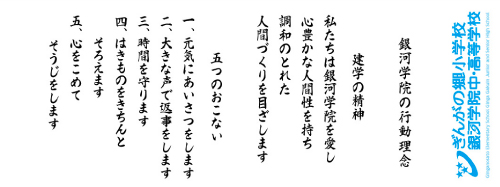 ぎんがの郷小学校
銀河学院中・高等学校
銀河学院の行動理念
建学の精神
私たちは銀河学院を愛し
心豊かな人間性を持ち
調和のとれた
人間づくりを目ざします
五つのおこない
一、元気にあいさつをします
二、大きな声で返事をします
三、時間を守ります
四、はきものをきちんと
そろえます
五、心をこめて
そうじをします